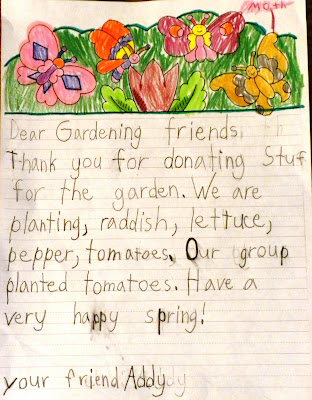 Moth
Dear Gardening friends,
Thank you for donating Stuf
for the garden. We are
planting, raddish, lettuce,
pepper, tomatoes. Our group
planted tomatoes. Have a
very happy spring!
your friend Addy